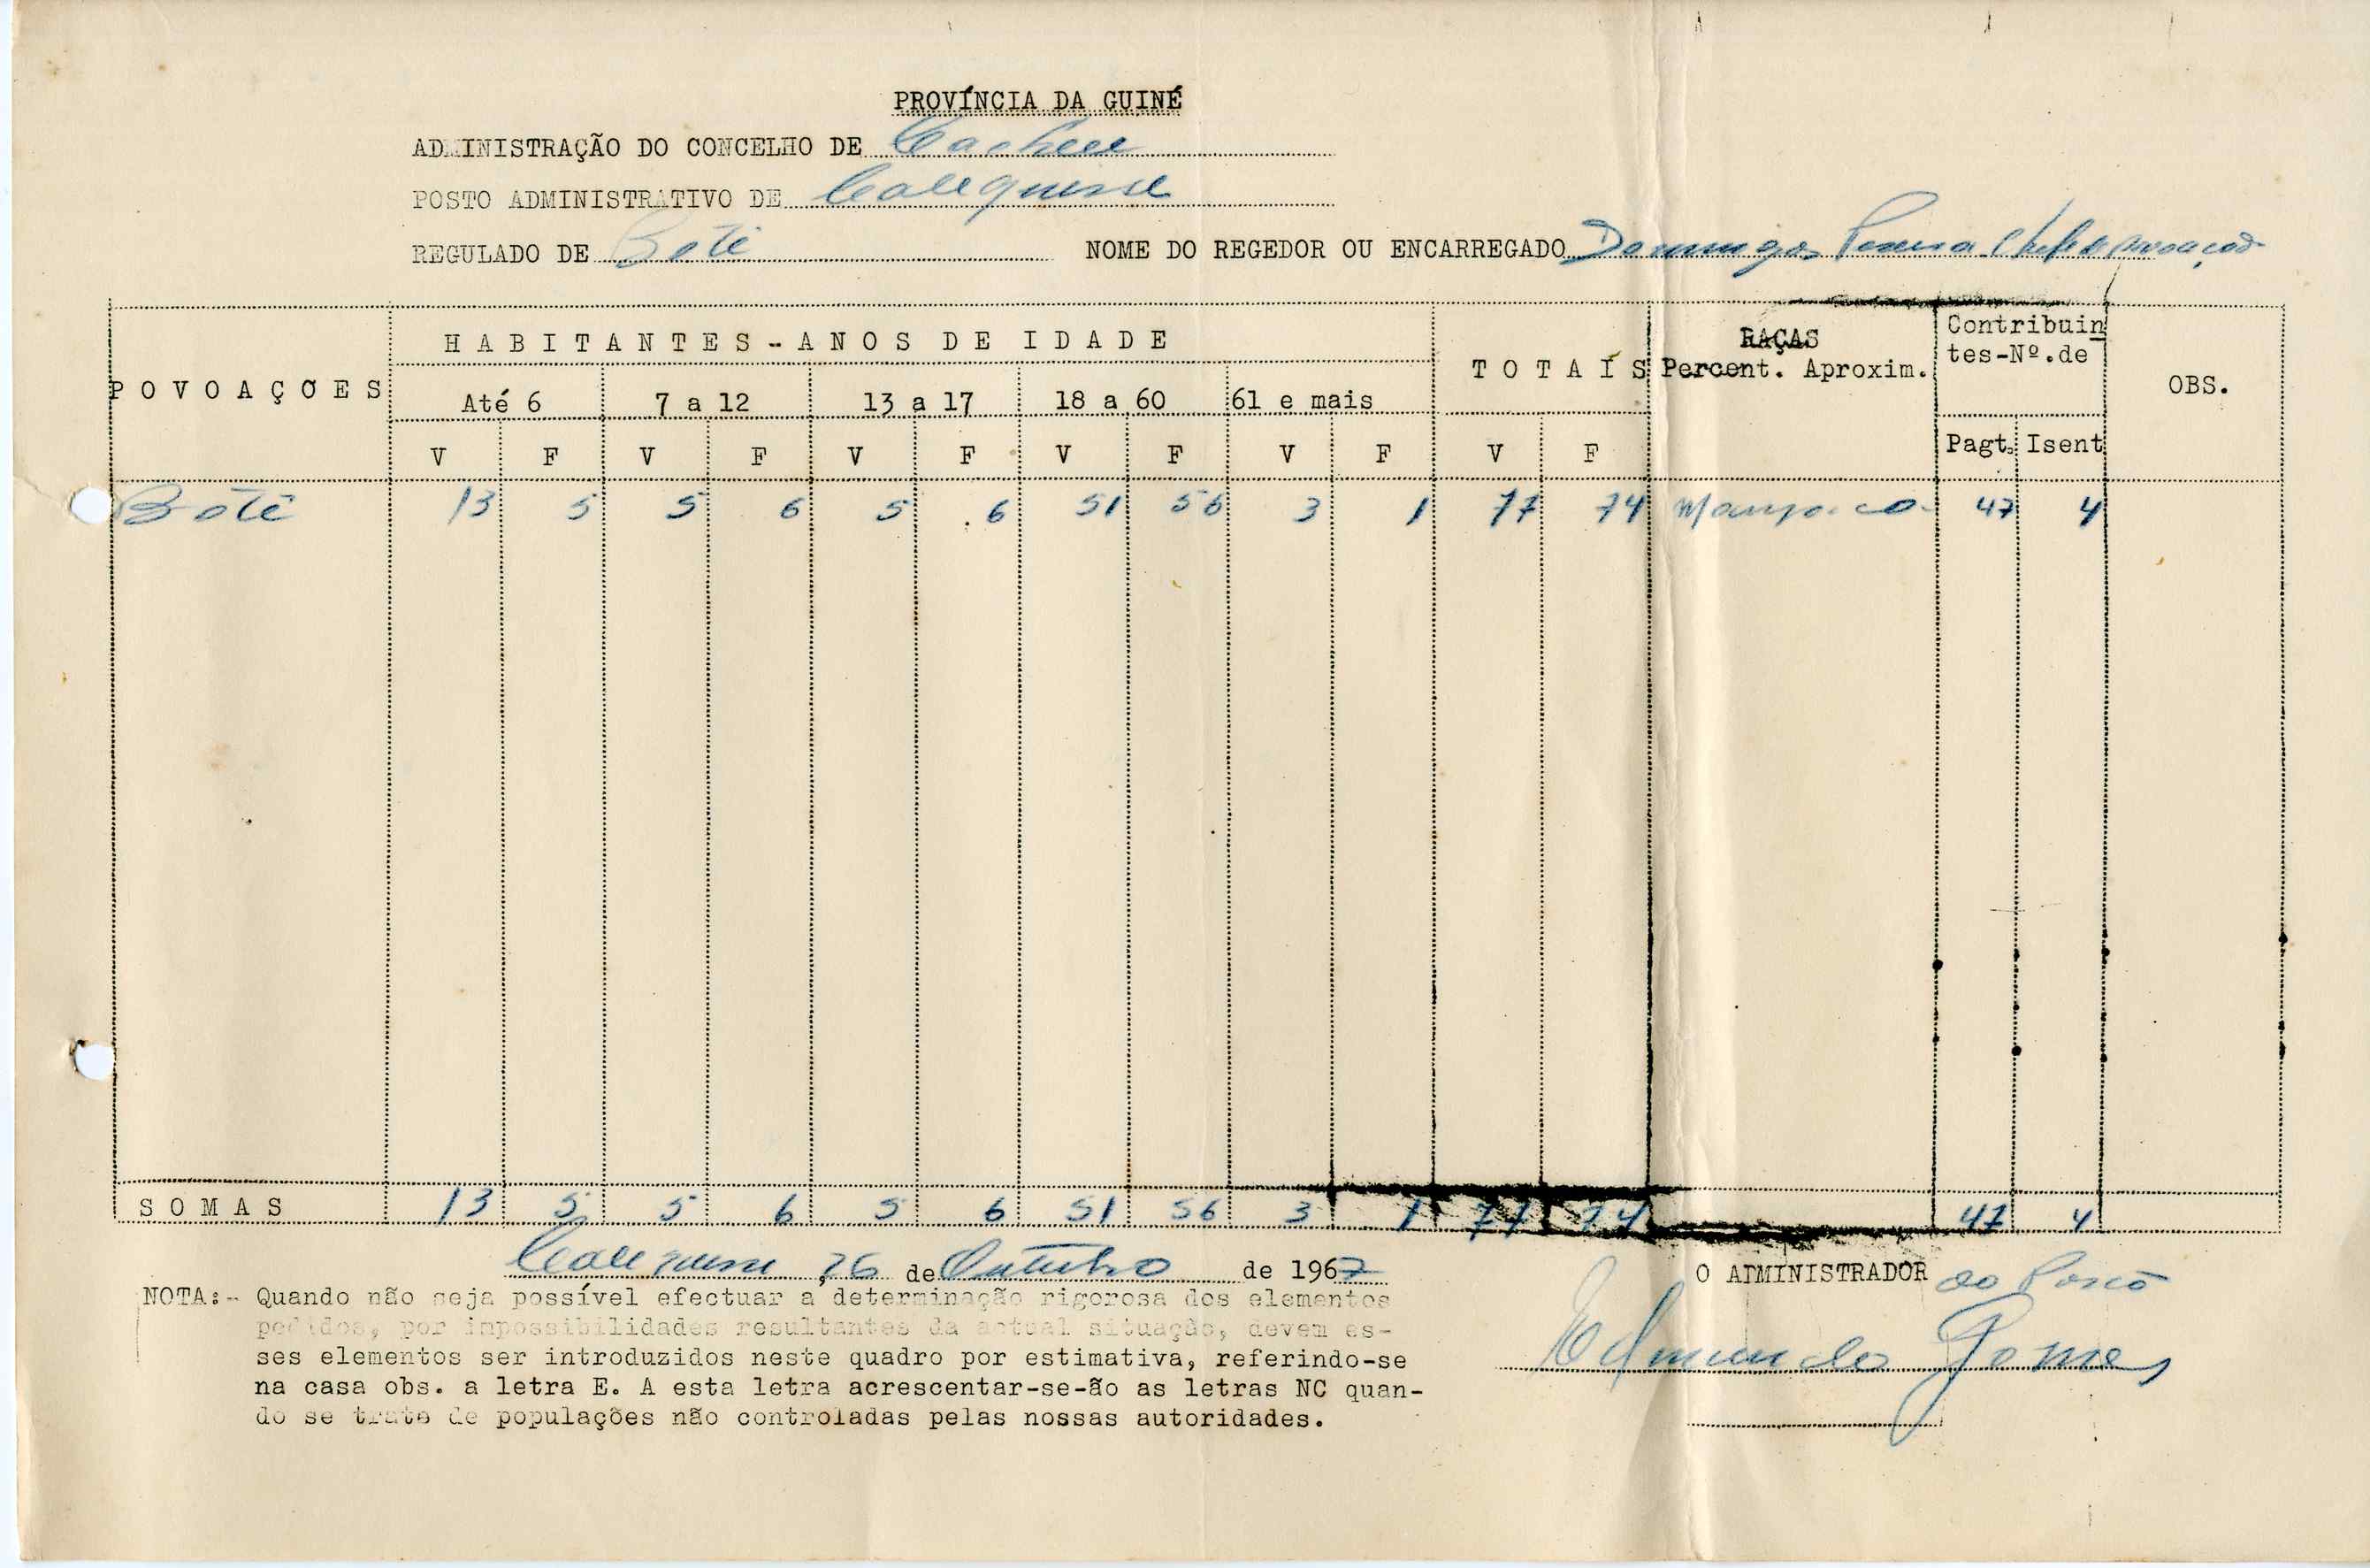 PROVÍNCIA DA GUINÉ
ADMINISTRAÇÃO DO CONCELHO DE Cacheu
POSTO ADMINISTRATIVO DE Calequisse
REGULADO DE Botê NOME DO REGEDOR OU ENCARREGADO Domingos Pereira Chefe povoação
POVOAÇÕES HABITANTES-ANOS DE IDADE TOTAIS RAÇAS Percent. Aproxim. Contribuin tes-Nº.de OBS.
Até 6 7 a 12 13 a 17 18 a 60 61 e mais
V F V F V F V F V F V F Pagt. Isent
Botê 13 5 5 6 5 6 51 56 3 1 77 74 Manjaco 47 4
SOMAS 13 5 5 6 5 6 51 56 3 1 77 74 47 4
Calequisse, 26 de Outubro de 1967
O ADMINISTRADOR do Posto
Edmundo Gomes
NOTA:- Quando não seja possível efectuar a determinação rigorosa dos elementos
pedidos, por impossibilidades resultantes da actual situação, devem es-
ses elementos ser introduzidos neste quadro por estimativa, referindo-se
na casa obs. a letra E. A esta letra acrescentar-se-ão as letras NC quan-
do se trate de populações não controladas pelas nossas autoridades.